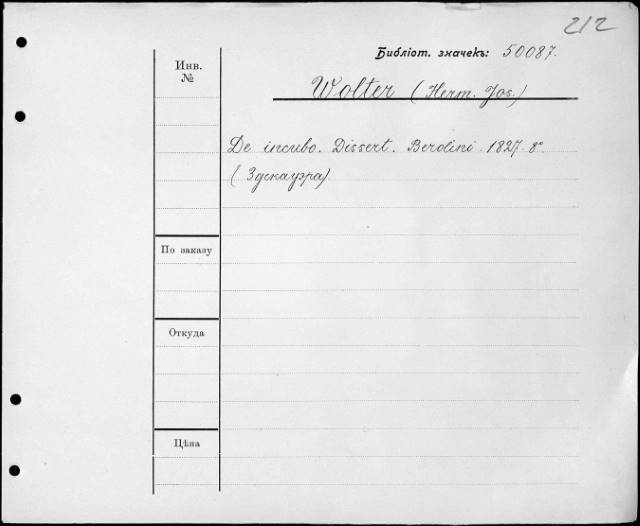 212
Библіот. значекъ: 50087.
Инв.
№
Wolter (Herm. Jos.)
De incubo. Dissert. Berolini. 1827. 8°
(Здекауэра)
По заказу
Откуда
Цѣна